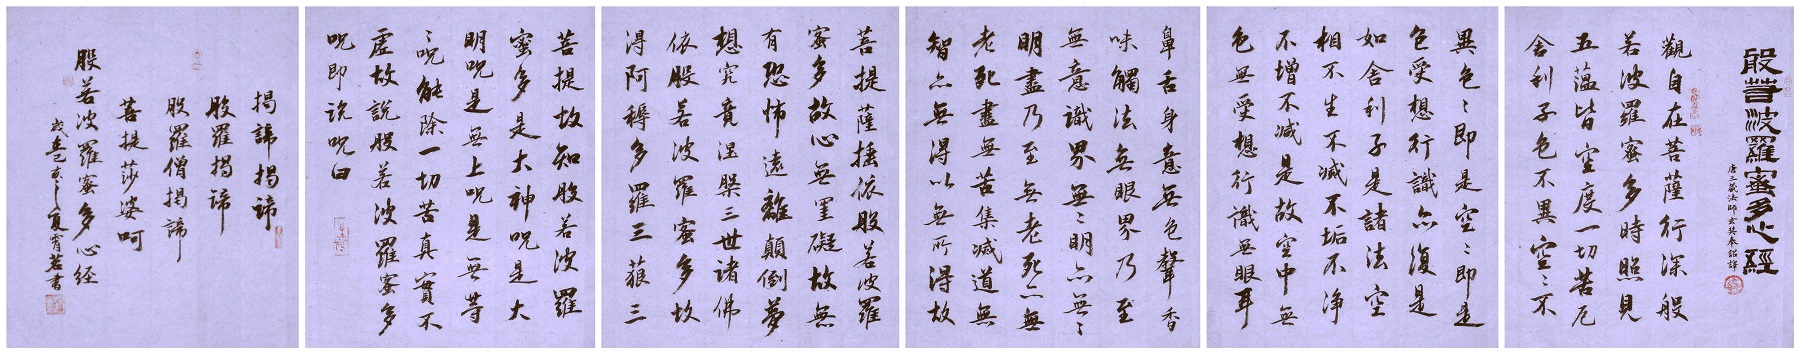 般若波羅蜜多心經
唐三藏法師玄奘奉詔譯
觀自在菩薩行深般
若波羅蜜多時照見
五蘊皆空度一切苦厄
舍利子色不異空〻不
異色〻即是空〻即是
色受想行識亦復是
如舍利子是諸法空
相不生不滅不垢不淨
不增不減是故空中無
色無受想行識無眼耳
鼻舌身意無色聲香
味觸法無眼界乃至
無意識界無〻明亦無〻
明盡乃至無老死亦無
老死盡無苦集滅道無
智亦無得以無所得故
菩提薩埵依般若波羅
蜜多故心無罣礙故無
有恐怖遠離顛倒夢
想究竟涅槃三世諸佛
依般若波羅蜜多故
得阿耨多羅三藐三
菩提故知般若波羅
蜜多是大神呪是大
明呪是無上呪是無等
〻呪能除一切苦真實不
虛故說般若波羅蜜多
呪即說呪曰
揭諦揭諦
般羅揭諦
般羅僧揭諦
菩提莎婆呵
般若波羅蜜多心經